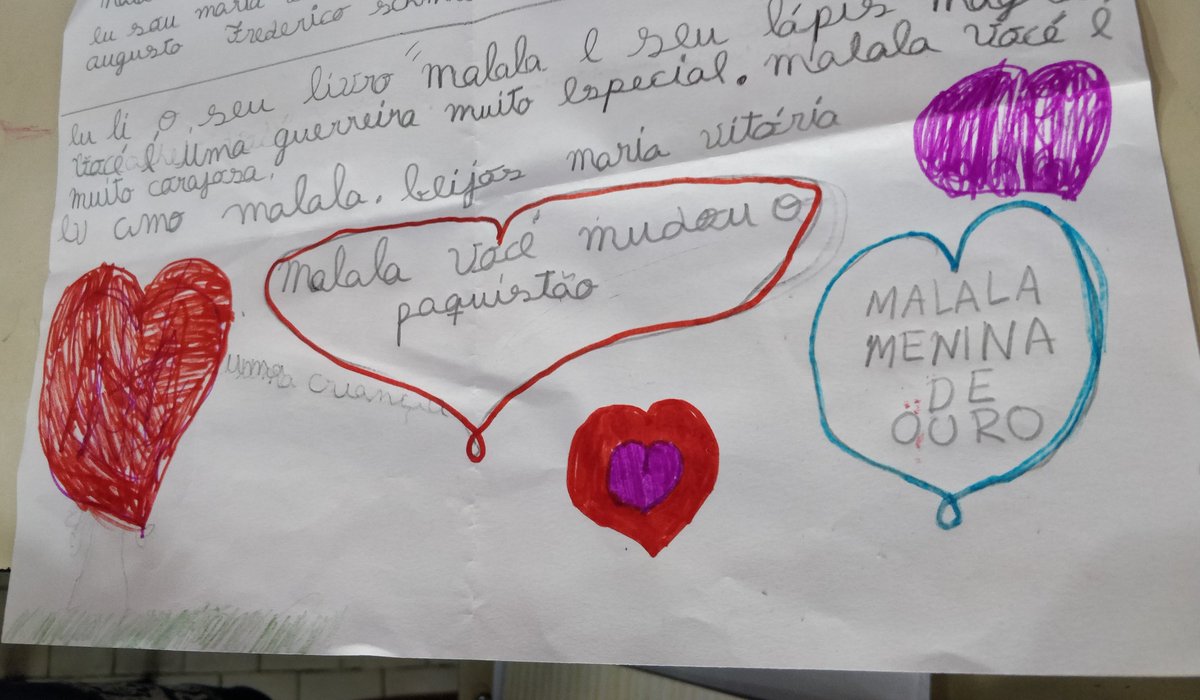 eu sou maria
augusto Frederico
eu li o seu livro "malala e seu lápis
você é uma guerreira muito especial. malala você é
muito corajosa.
eu amo malala. beijos maria vitória
malala você mudou o
paquistão
uma criança
MALALA
MENINA
DE
OURO